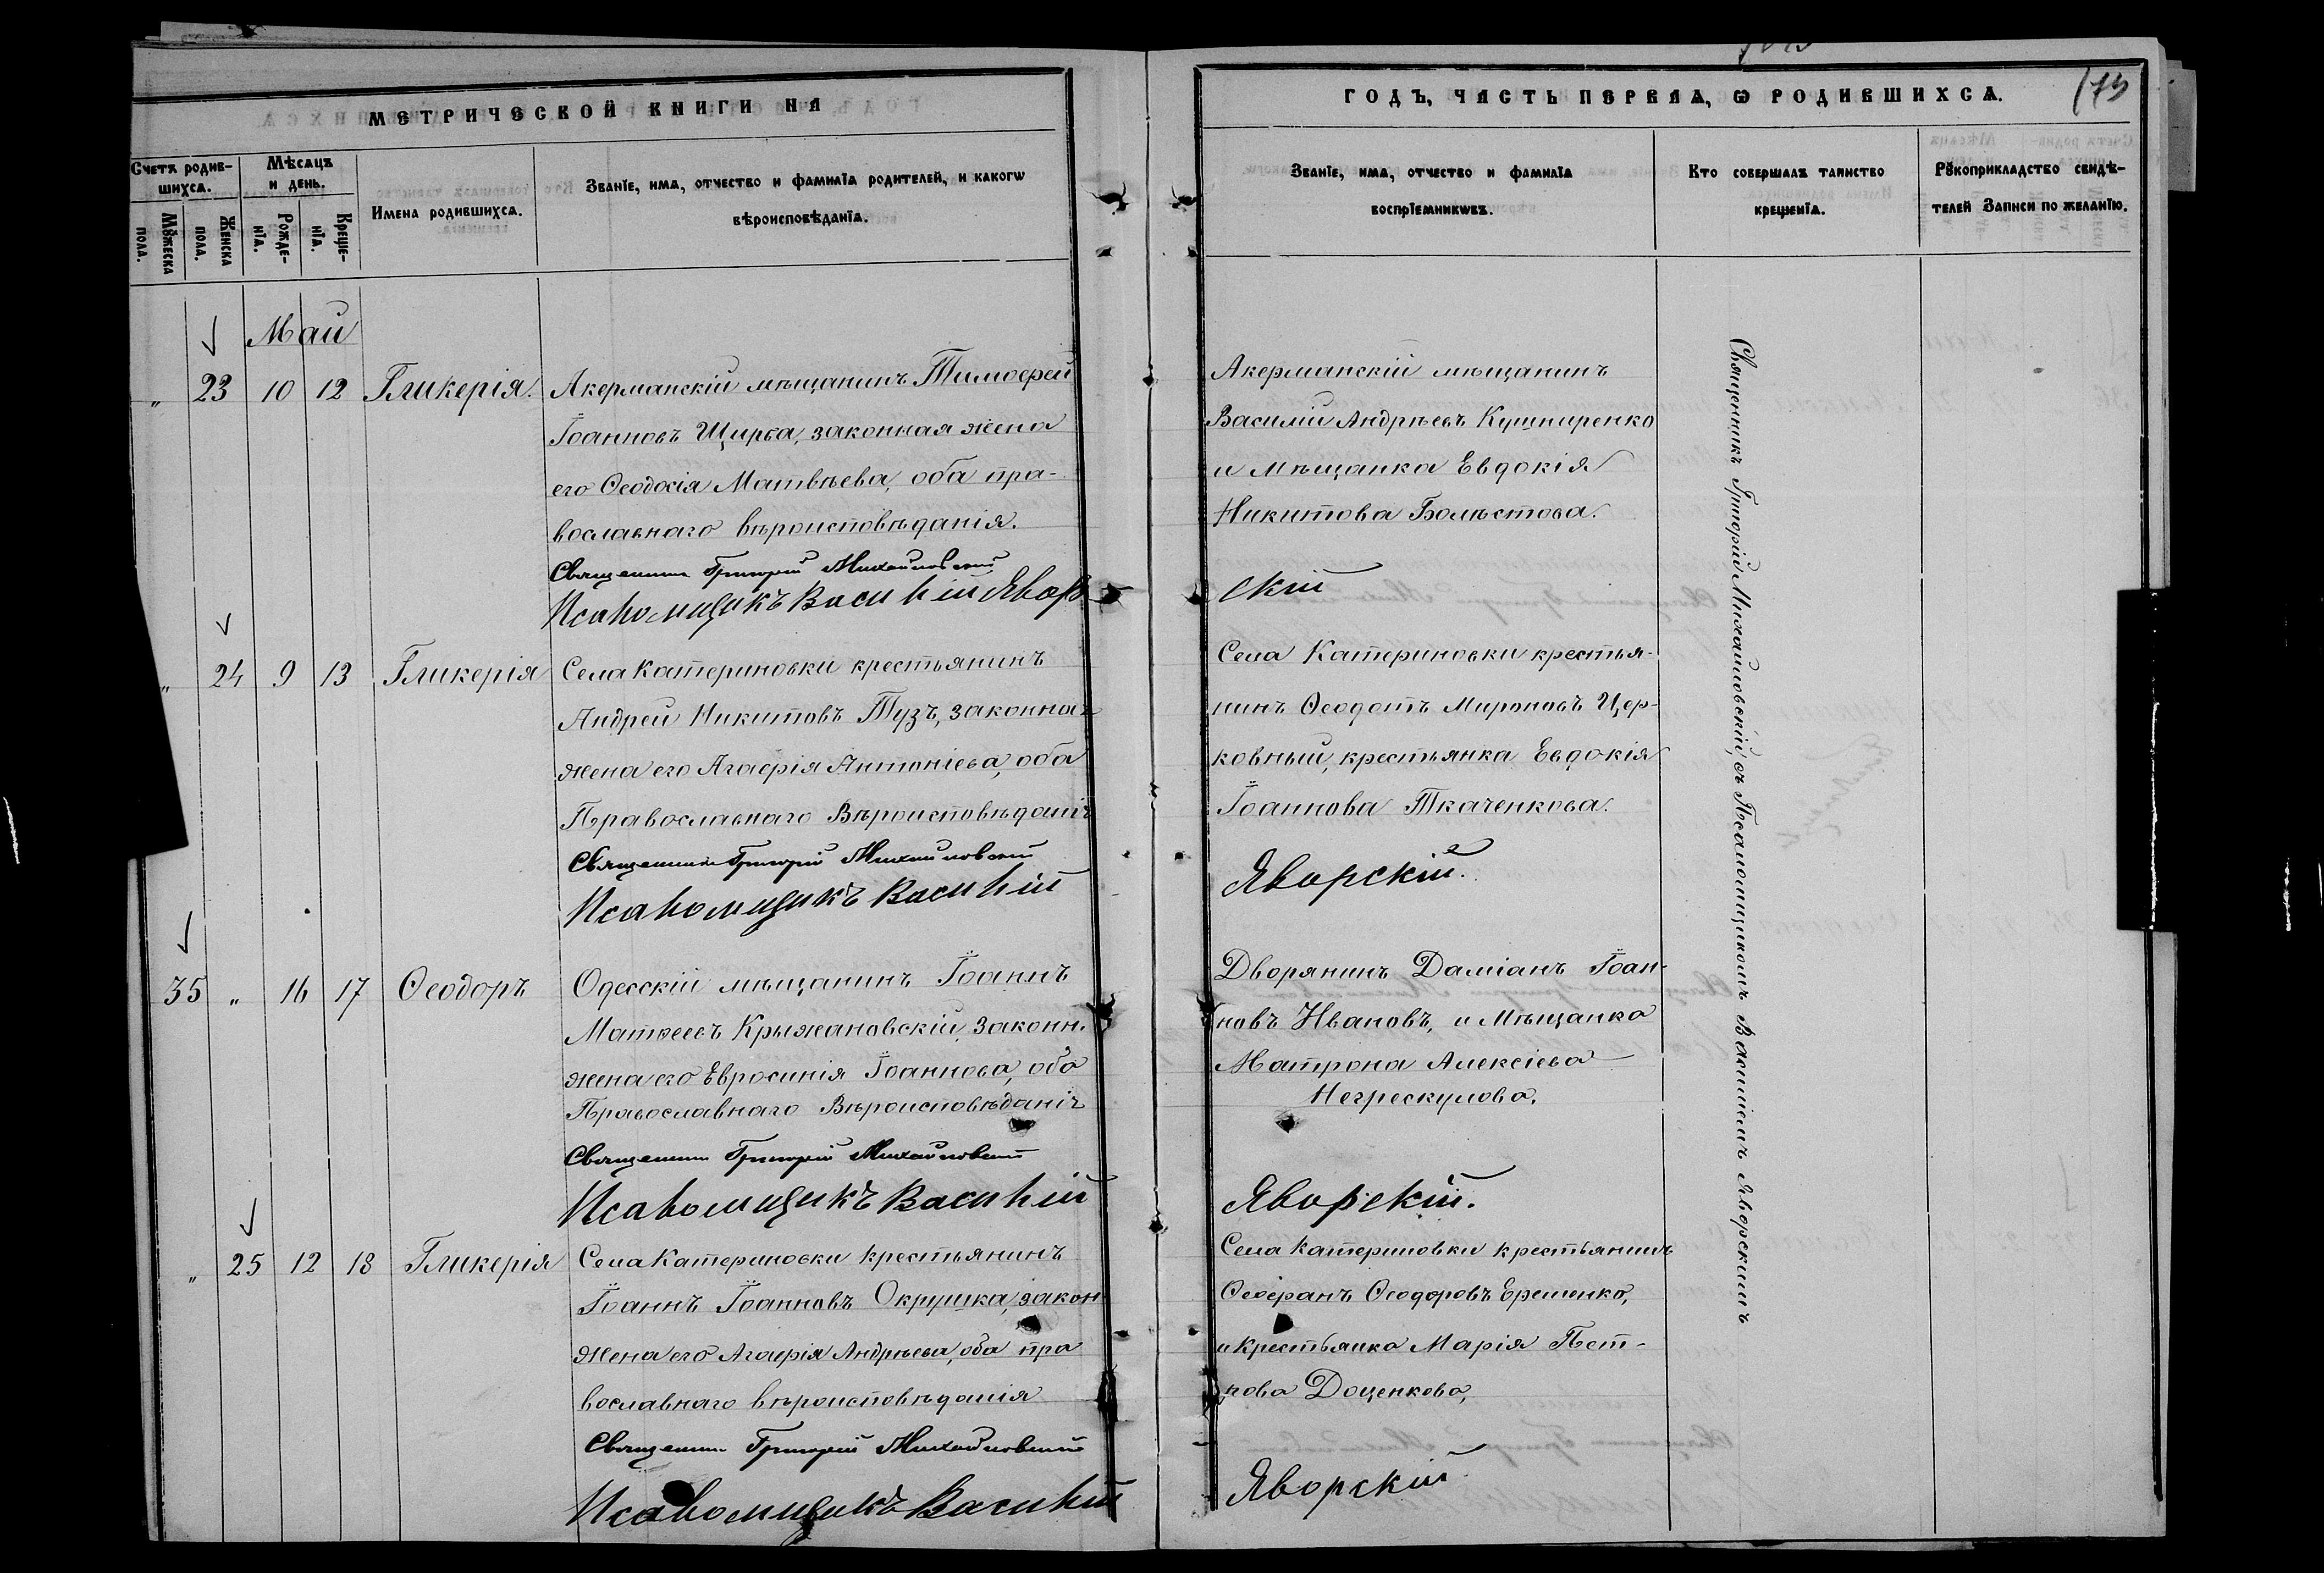 МЕТРИЧЕСКОЙ КНИГИ НА
Счетъ родив-
шихся.
Мѣсяцъ
и день.
Мꙋжеска
пола.
Женска
пола.
Рожде-
нїя.
Креще-
нїя.
Имена родившихся.
Званїе, имя, отчество и фамилїя родителей, и какогѡ
вѣроисповѣданїя.
Май
„ 23 10 12 Гликерія.
Акерманскій мѣщанинъ Тимофей
Іоанновъ Щирба, законная жена
его Ѳеодосія Матвѣева, оба пра-
вославнаго вѣроисповѣданія.
Священникъ Григорій Михайловскій
Псаломщикъ Василій Явор
„ 24 9 13 Гликерія
Села Катериновки крестьянинъ
Андрей Никитовъ Тузъ, законная
жена его Агафія Антоніева, оба
Православнаго Вѣроисповѣданія
Священникъ Григорій Михайловскій
Псаломщикъ Василій
35 „ 16 17 Ѳеодоръ
Одесскій мѣщанинъ Іоаннъ
Матѳеевъ Крыжановскій, законн.
жена его Евросинія Іоаннова, оба
Православнаго Вѣроисповѣданія
Священникъ Григорій Михайловскій
Псаломщикъ Василій
„ 25 12 18 Гликерія
Села Катериновки крестьянинъ
Іоаннъ Іоанновъ Окрушка, закон
жена его Агафія Андрѣева, оба пра
вославнаго вѣроисповѣданія
Священникъ Григорій Михайловскій
Псаломщикъ Василій
ГОДЪ, ЧАСТЬ ПЕРВАЯ, Ѡ РОДИВШИХСЯ.
Званїе, имя, отчество и фамилїя
воспрїемникѡвъ.
Кто совершалъ таинство
крещенїя.
Рꙋкоприкладство свидѣ-
телей Записи по желанїю.
Акерманскій мѣщанинъ
Василій Андрѣевъ Кушниренко
и Мѣщанка Евдокія
Никитова
скій
Села Катериновки крестья-
нинъ Ѳеодотъ Мироновъ Цер-
ковный, крестьянка Евдокія
Іоаннова Ткаченкова.
Яворскій.
Дворянинъ Даміанъ Іоан-
новъ Ивановъ, и Мѣщанка
Матрона Алексіева
Негрескулова.
Яворскій.
Села Катериновки крестьянинъ
Ѳеодоровъ Еременко,
и крестьянка Марія Пет-
рова Доценкова,
Яворскій
Священникъ Григорій Михайловскій, съ Псаломщикомъ Василіемъ Яворскимъ